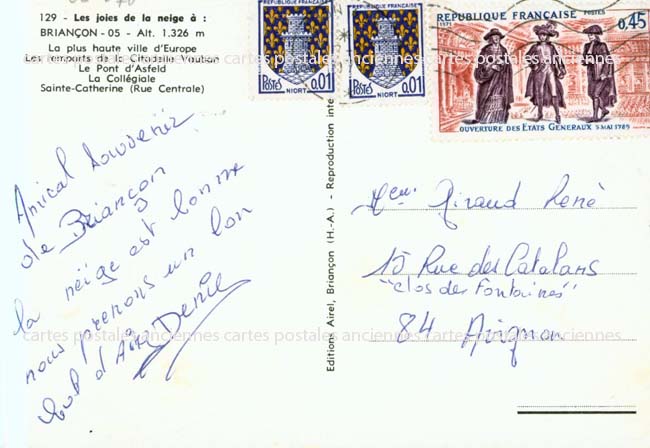 129 - Les joies de la neige à :
BRIANÇON - 05 - Alt. 1.326 m
La plus haute ville d'Europe
Les remparts de la Citadelle Vauban
Le Pont d'Asfeld
La Collégiale
Sainte-Catherine (Rue Centrale)
POSTES 0,01
NIORT
POSTES 0,01
NIORT
RÉPUBLIQUE FRANÇAISE POSTES
1971 0,45
OUVERTURE DES ÉTATS GÉNÉRAUX 5 MAI 1789
Amical Souvenir
de Briançon
la neige est bonne
nous prenons un bon
bol d'Air Denise
Editions Airel, Briançon (H.-A.) - Reproduction inte
Giraud René
15 Rue des Catalans
"Clos des Fontaines"
84 Avignon
cartes postales anciennes cartes postales anciennes cartes postales anciennes
cartes postales anciennes cartes postales anciennes cartes postales anciennes